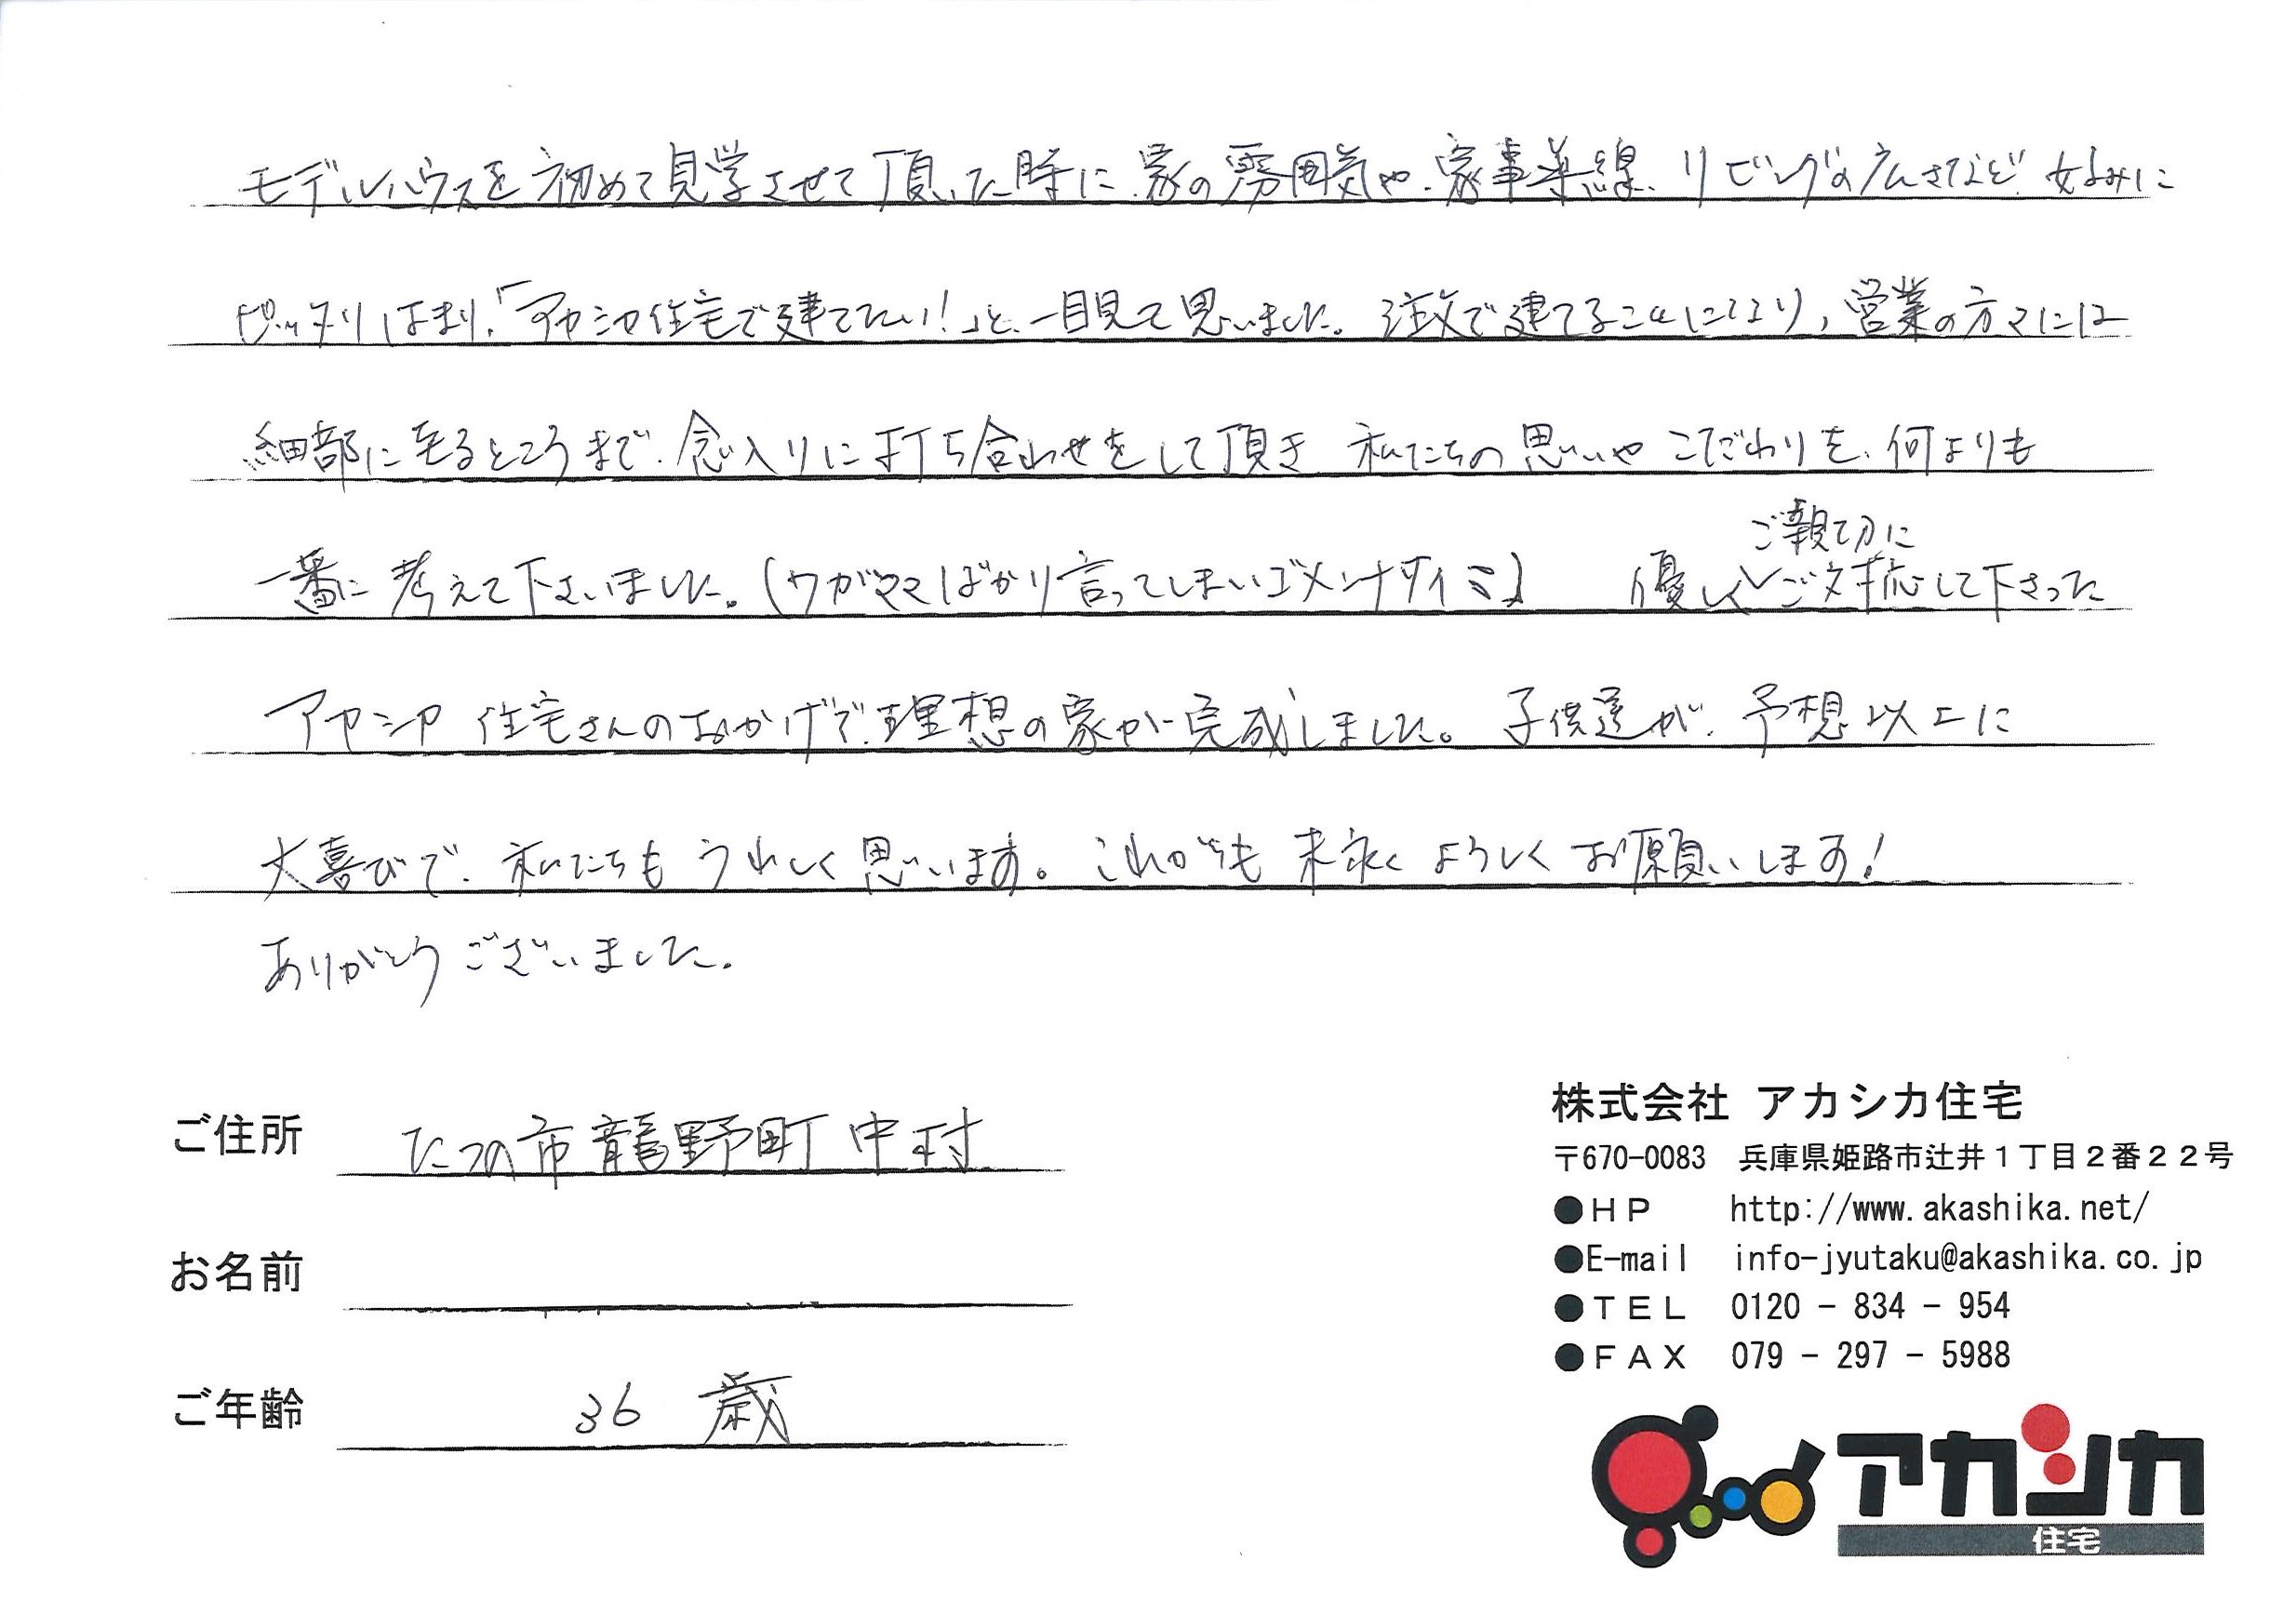 モデルハウスを初めて見学させて頂いた時に、家の雰囲気や、家事導線、リビングの広さなど、好みに
ピッタリはまり、「アカシカ住宅で建てたい！」と、一目見て思いました。注文で建てることにより、営業の方々には
細部に至るところまで、念入りに打ち合わせをして頂き 私たちの思いや こだわりを、何よりも
ご親切に
一番に 考えて下さいました。(ワガママばかり言ってしまいゴメンナサイ) 優しくご対応して下さった
アカシカ 住宅さんのおかげで、理想の家が完成しました。子供達が、予想以上に
大喜びで、私たちも うれしく思います。これからも 末永く よろしく お願いします！
ありがとう ございました。
ご住所 たつの市龍野町中村
お名前
ご年齢 36 歳
株式会社 アカシカ住宅
〒670-0083 兵庫県姫路市辻井１丁目２番２２号
●ＨＰ http://www.akashika.net/
●E-mail info-jyutaku@akashika.co.jp
●ＴＥＬ 0120 - 834 - 954
●ＦＡＸ 079 - 297 - 5988
アカシカ
住宅